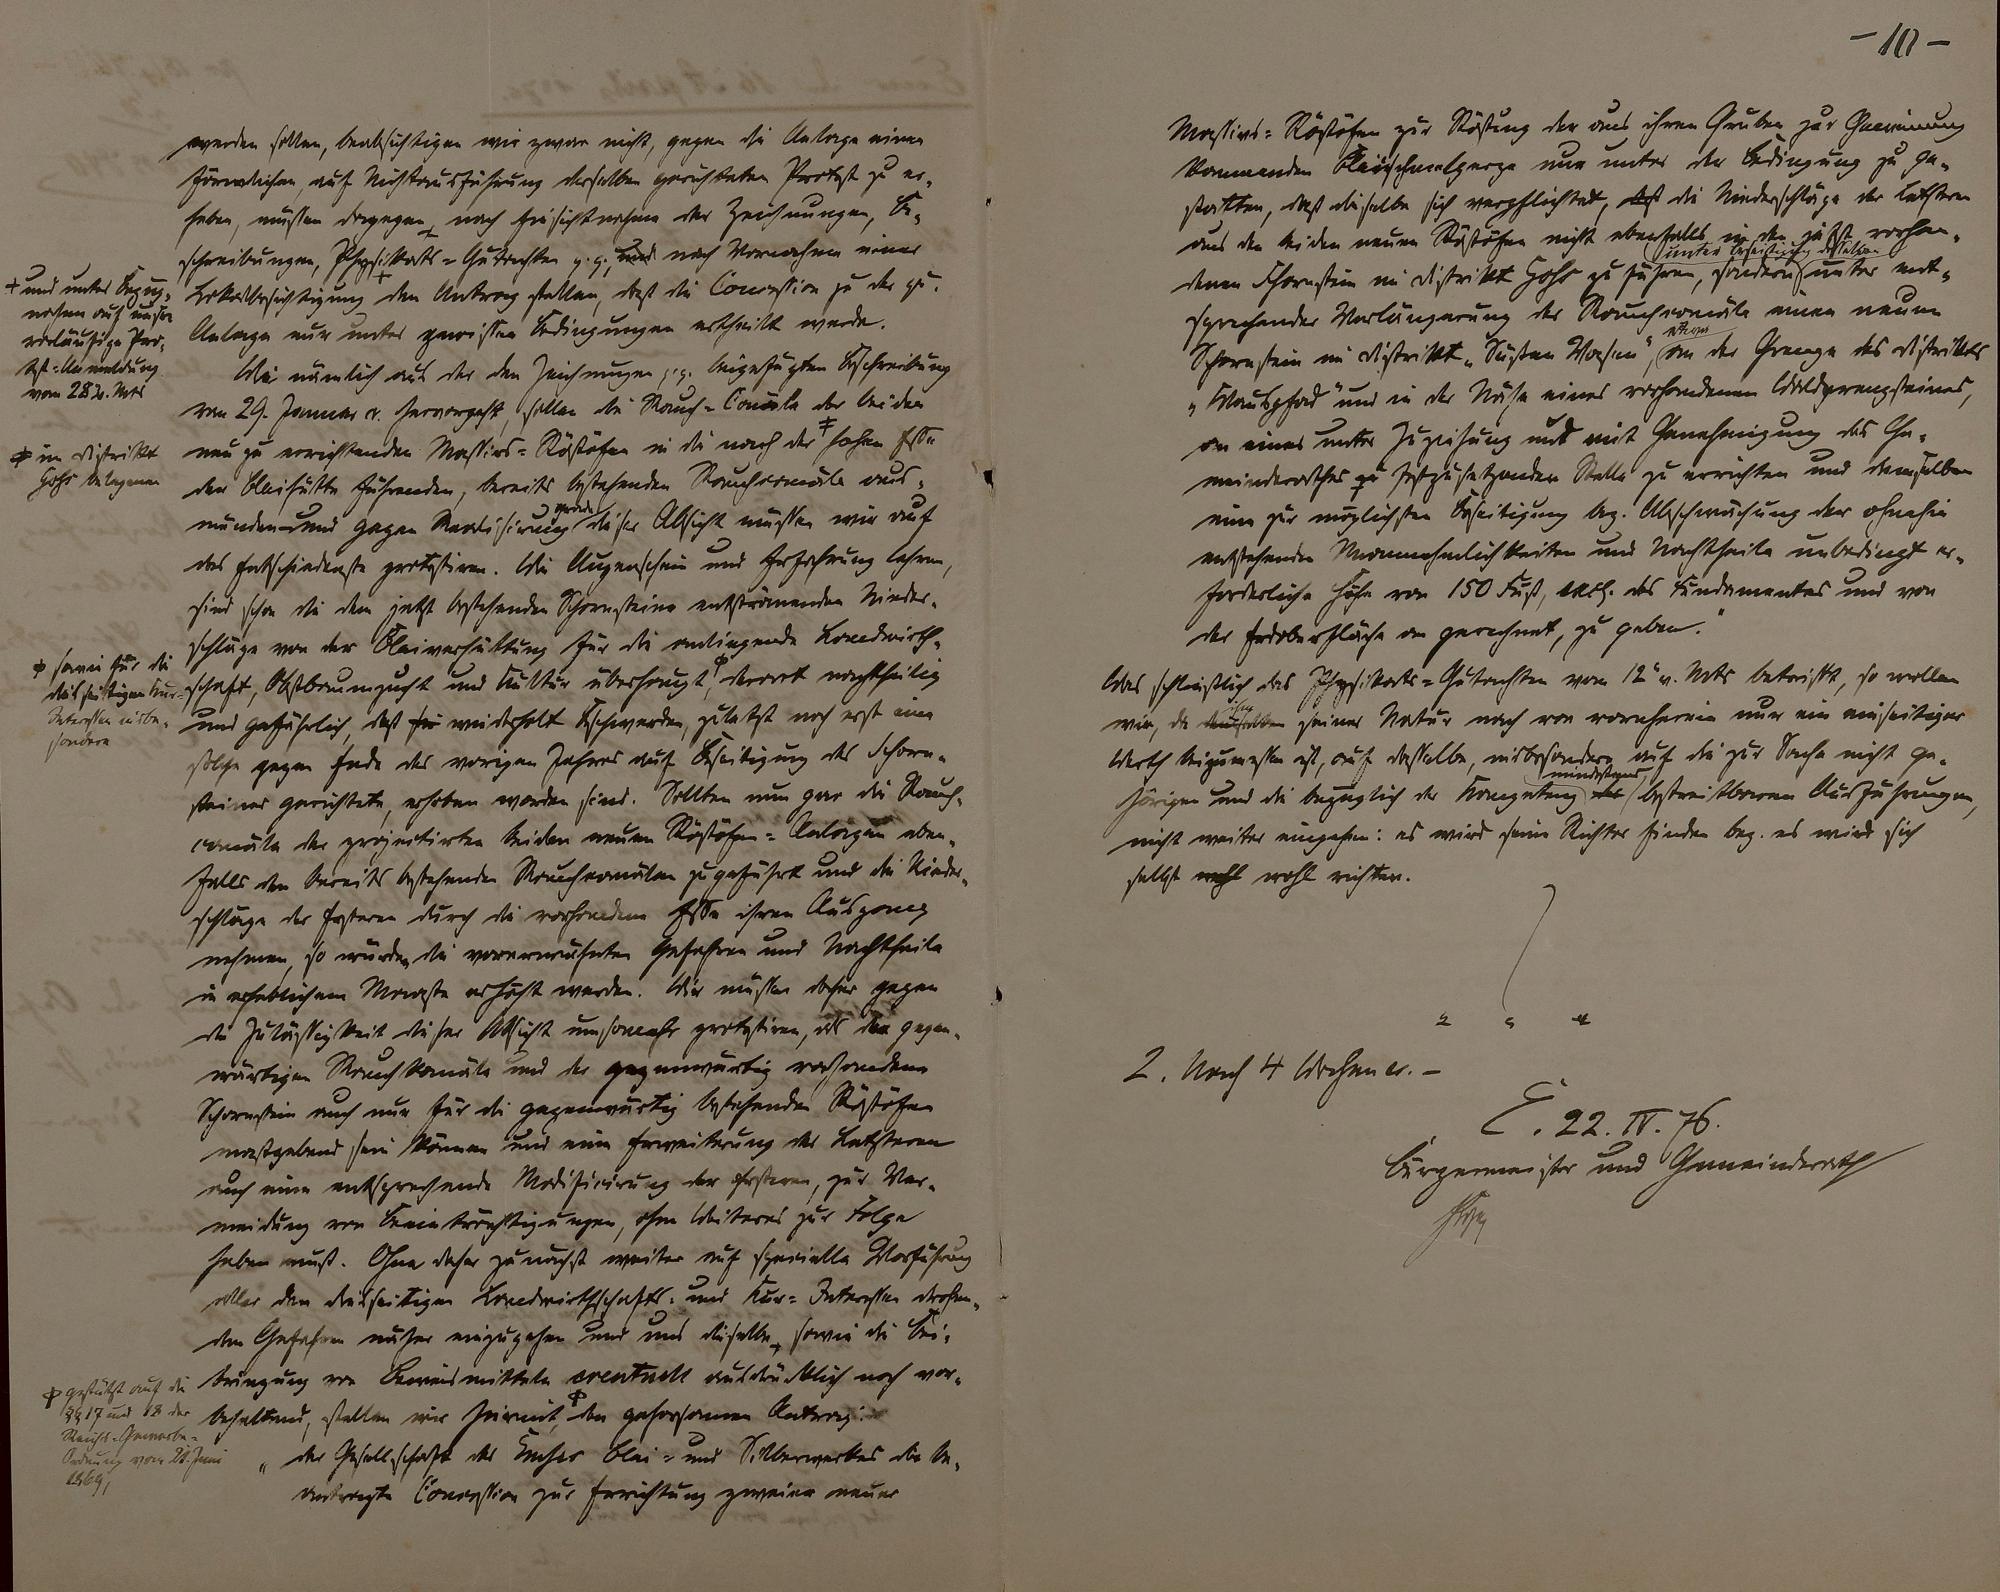 werden sollen, beabsichtigen wir zwar nicht, gegen die Anlage einen
förmlichen, auf Nichtausführung derselben gerichteten Protest zu er-
heben, müssen dagegen, nach Einsichtnahme der Zeichnungen, Be-
schreibungen, Physikats-Gutachten p.p., und nach Vornahme einer
+ und unter Bezug-
nahme auf unsere
vorläufige Pro-
test-Anmeldung
vom 28 v. Mts
Lokalbesichtigung den Antrag stellen, daß die Concession zu der qu.
Anlage nur unter gewissen Bedingungen ertheilt werde.
Wie nämlich aus der den Zeichnungen p.p. beigefügten Beschreibung
vom 29. Januar cr. hervorgeht, sollen die Rauch-Canäle der beiden
neu zu errichtenden Massivs-Röstöfen in die nach der ‡ hohen Esse
‡ im Distrikt
Hohs belegenen
der Bleihütte führenden, bereits bestehenden Rauchcanäle aus-
münden und gegen Realisirung gerade dieser Absicht müssen wir auf
das Entschiedenste protestiren. Wie Augenschein und Erfahrung lehren,
sind schon die dem jetzt bestehenden Schornsteine entströmenden Nieder-
schläge von der Bleiverhüttung für die anliegende Landwirth-
schaft, Obstbaumzucht und Kultur überhaupt, derart nachtheilig
sowie für die
diesseitigen Kur-
Interessen insbe-
sondere
und gefährlich, daß wiederholt Beschwerden, zuletzt noch erst eine
solche gegen Ende des vorigen Jahres auf Beseitigung des Schorn-
steines gerichtete, erhoben worden sind. Sollten nun gar die Rauch-
canäle der projectirten beiden neuen Röstöfen-Anlagen eben-
falls den bereits bestehenden Rauchcanälen zugeführt und die Nieder-
schläge der Ersteren durch die vorhandene Esse ihren Ausgang
nehmen, so würden die vorerwähnten Gefahren und Nachtheile
in erheblichem Maaße erhöht werden. Wir müssen daher gegen
die Zulässigkeit dieser Absicht umsomehr protestiren, als die gegen-
wärtigen Rauchkanäle und der gegenwärtig vorhandene
Schornstein auch nur für die gegenwärtig bestehenden Röstöfen
maßgebend sein können und eine Erweiterung der Letzteren
auch eine entsprechende Modificirung der Ersteren, zur Ver-
meidung von Beeinträchtigungen, ohne Weiteres zur Folge
haben muß. Ohne daher zunächst weiter auf specielle Vorführung
aller den diesseitigen Landwirthschafts- und Kur-Interessen drohen-
den Gefahren näher einzugehen und uns dieselbe, sowie die Bei-
bringung von Beweismitteln eventuell ausdrücklich noch vor-
behaltend, stellen wir hiermit, den gehorsamen Antrag:
gestützt auf die
§§ 17 und 18 der
Reichs-Gewerbe-
Ordnung vom 21. Juni
1869,
„der Gesellschaft des Emser Blei- und Silberwerkes die be-
antragte Concession zur Errichtung zweier neuer
- 10 -
Massivs-Röstöfen zur Röstung der aus ihren Gruben zur Gewinnung
kommenden Bleischmelzerze nur unter der Bedingung zu ge-
statten, daß dieselbe sich verpflichtet, die Niederschläge der Letzteren
aus den beiden neuen Röstöfen nicht ebenfalls in den jetzt vorhan-
denen Schornstein im Distrikt Hohs zu führen, sondern unter Beseitigung desselben unter ent-
sprechender Verlängerung der Rauchcanäle einen neuen
Schornstein im Distrikt „Süßen Wasen“, etwa an der Grenze des Distriktes
„Klauspfad“ und in der Nähe eines vorhandenen Waldgrenzsteines,
an einer unter Zuziehung und mit Genehmigung des Ge-
meinderathes festzusetzenden Stelle zu errichten und demselben
eine zur möglichsten Beseitigung bez. Abschwächung der ohnehin
entstehenden Unannehmlichkeiten und Nachtheile unbedingt er-
forderliche Höhe von 150 Fuß, excl. des Fundamentes und von
der Erdoberfläche an gerechnet, zu geben.“
Was schließlich das Physikats-Gutachten vom 12 v. Mts betrifft, so wollen
wir, da seiner Natur nach von vornherein nur ein einseitiger
Werth beizumessen ist, auf dasselbe, insbesondere auf die zur Sache nicht ge-
hörigen und die bezüglich der Competenz mindestens bestreitbaren Ausführungen,
nicht weiter eingehen: es wird seine Richter finden bez. es wird sich
selbst wohl richten.
2. Nach 4 Wochen cr. –
E. 22. IV. 76.
Bürgermeister und Gemeinderath